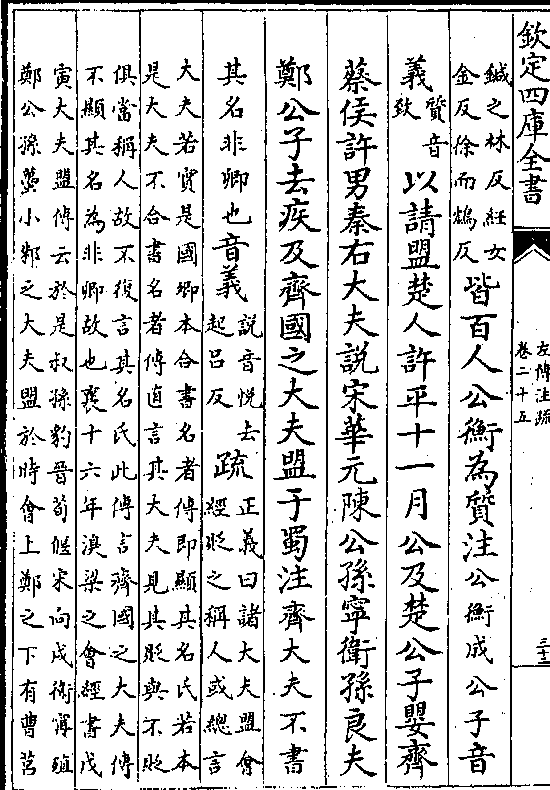 欽定四庫全書
左傳注疏
卷二十五
鍼之林反紝女
金反徐而鴆反
皆百人公衡為質注公衡成公子音
義
質音
致
以請盟楚人許平十一月公及楚公子嬰齊
蔡侯許男秦右大夫說宋華元陳公孫寧衛孫良夫
鄭公子去疾及齊國之大夫盟于蜀注齊大夫不書
其名非卿也音義
說音悅去
起呂反
疏
正義曰諸大夫盟會
經貶之稱人或總言
大夫若實是國卿本合書名者傳即顯其名氏若本
是大夫不合書名者傳直言其大夫見其貶與不貶
俱當稱人故不復言其名氏此傳言齊國之大夫傳
不顯其名為非卿故也襄十六年溴梁之會經書戊
寅大夫盟傳云於是叔孫豹晉荀偃宋向戌衛甯殖
鄭公孫蠆小邾之大夫盟於時會上鄭之下有曹莒